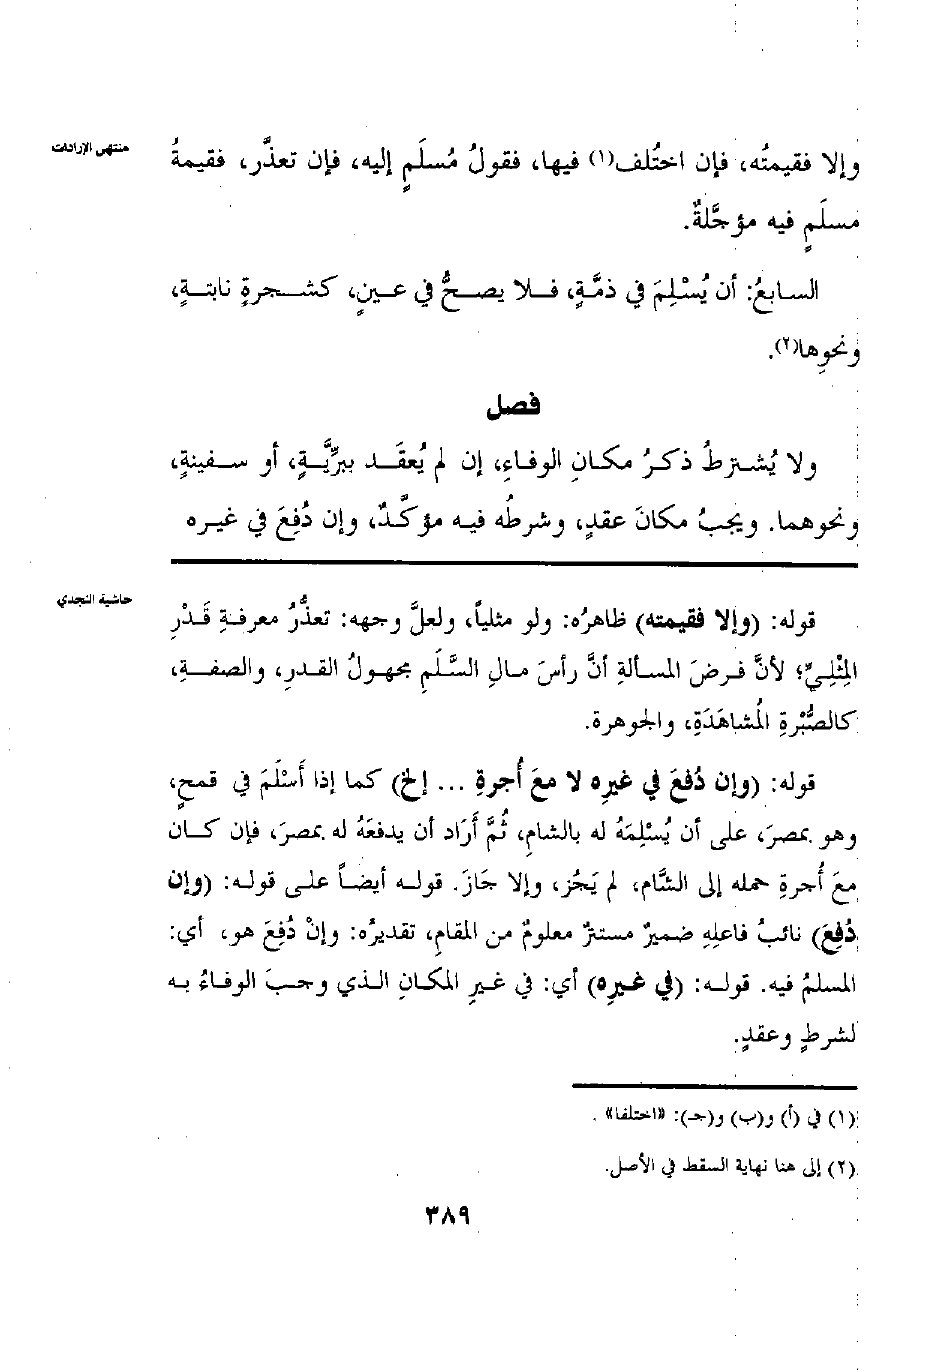 منتهى الإرادات
وإلا فقيمتُه، فإن اختُلف(١) فيها، فقولُ مُسلَمٍ إليه، فإن تعذَّر، فقيمةُ
مسلَمٍ فيه مؤجَّلةٌ.
السابعُ: أن يُسْلِمَ في ذمَّةٍ، فلا يصحُّ في عينٍ، كشجرةٍ نابتةٍ،
ونحوِها(٢).
فصل
ولا يُشترطُ ذكرُ مكانِ الوفاءِ، إن لم يُعقَد ببرِّيَّةٍ، أو سفينةٍ،
ونحوهما. ويجبُ مكانَ عقدٍ، وشرطُه فيه مؤكَّدٌ، وإن دُفِعَ في غيره
حاشية النجدي
قوله: (وإلا فقيمته) ظاهرُه: ولو مثلياً، ولعلَّ وجهه: تعذُّرُ معرفةِ قَدْرِ
المِثْليِّ؛ لأنَّ فرضَ المسألةِ أنَّ رأسَ مالِ السَّلَمِ مجهولُ القدرِ، والصفةِ،
كالصُّبْرةِ المُشاهَدَةِ، والجوهرة.
قوله: (وإن دُفِعَ في غيرِه لا معَ أُجرةِ ... إلخ) كما إذا أَسْلَمَ في قمحٍ،
وهو بمصرَ، على أن يُسْلِمَهُ له بالشامِ، ثُمَّ أَرَاد أن يدفعَهُ له بمصرَ، فإن كان
معَ أُجرةِ حمله إلى الشَّام، لم يَجُز، وإلا جَازَ. قوله أيضاً على قوله: (وإن
دُفِعَ) نائبُ فاعلِهِ ضميرٌ مستترٌ معلومٌ من المقامِ، تقديرُه: وإنْ دُفِعَ هو، أي:
المسلمُ فيه. قوله: (في غيرِه) أي: في غيرِ المكانِ الذي وجبَ الوفاءُ به
لشرطٍ وعقدٍ.
(١) في (أ) و(ب) و(جـ): «اختلفا» .
(٢) إلى هنا نهاية السقط في الأصل.
٣٨٩